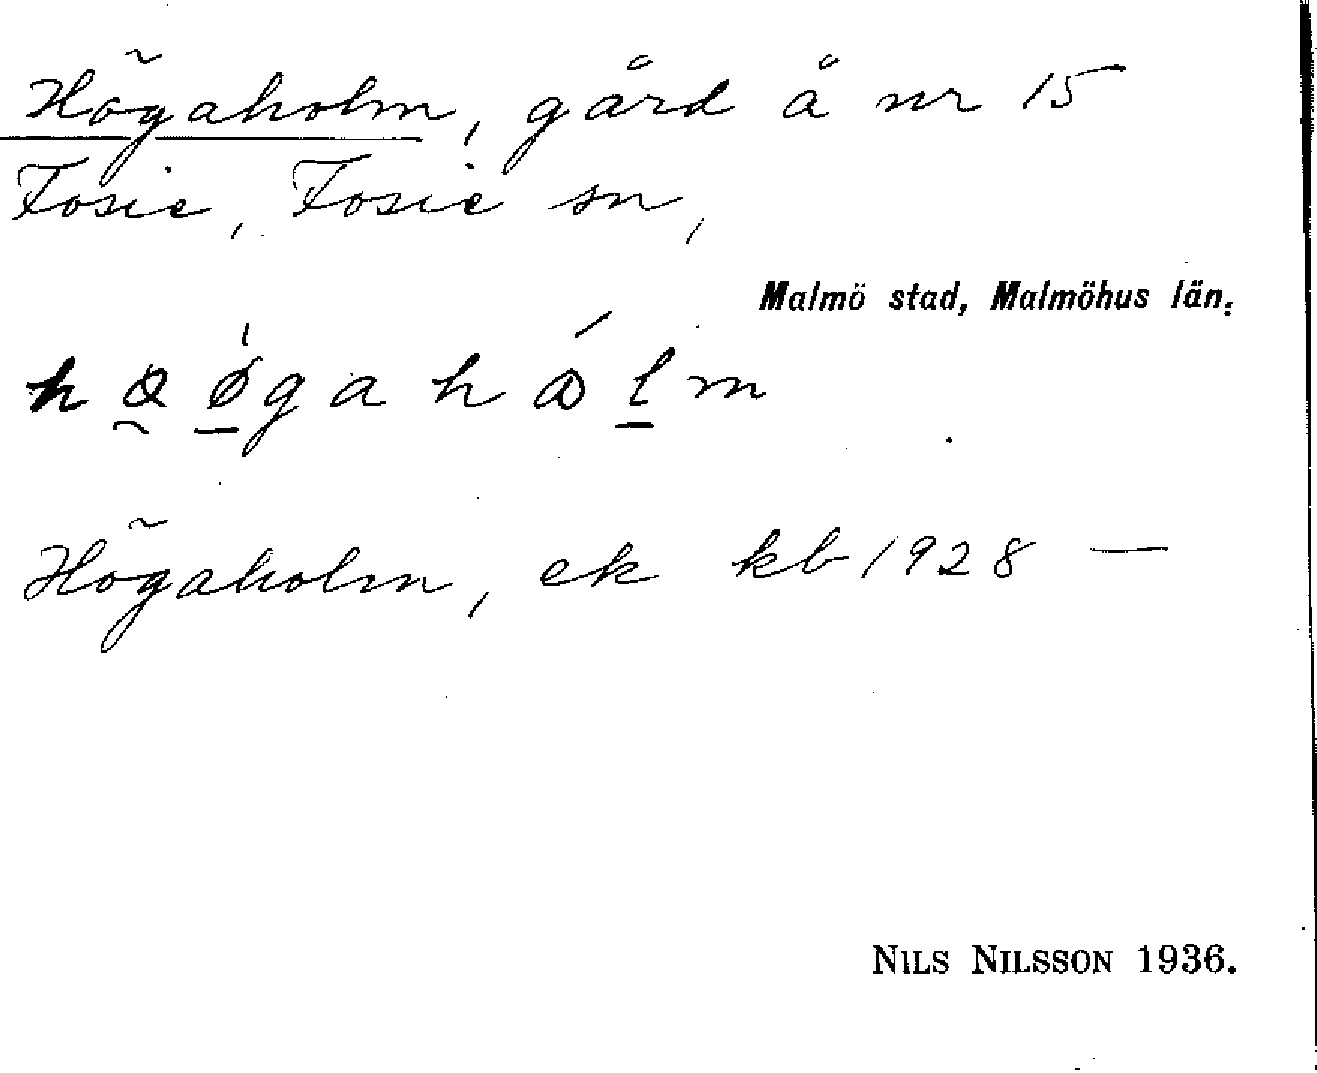 Högaholm, gård å nr 15
Fosie, Fosie sn,
Malmö stad, Malmöhus län.
Högaholm, ek kb 1928 —
NILS NILSSON 1936.